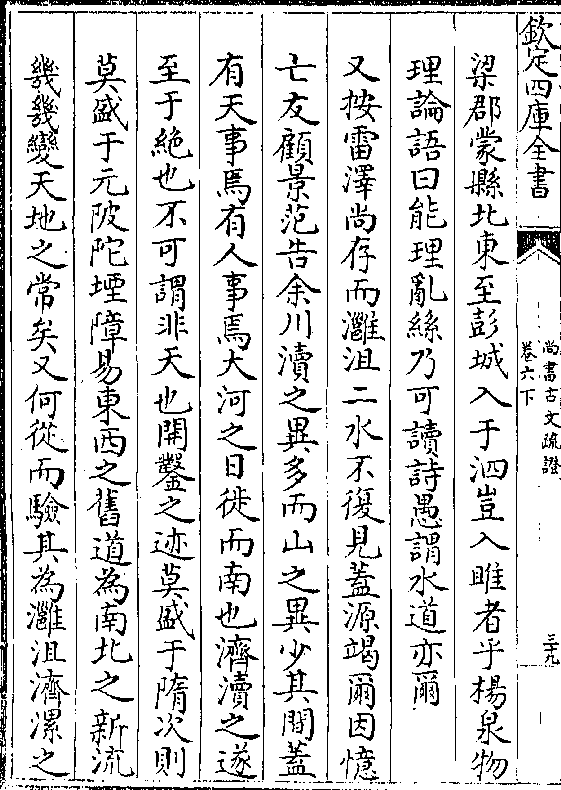 欽定四庫全書
尚書古文疏證
卷六下
三十九
梁郡蒙縣北東至彭城入于泗豈入睢者乎楊泉物
理論語曰能理亂絲乃可讀詩愚謂水道亦爾
又按雷澤尚存而灉沮二水不復見蓋源竭爾因憶
亡友顧景范告余川瀆之異多而山之異少其間蓋
有天事焉有人事焉大河之日徙而南也濟瀆之遂
至于絶也不可謂非天也開鑿之迹莫盛于隋次則
莫盛于元陂陀堙障易東西之舊道為南北之新流
幾幾變天地之常矣又何從而驗其為灉沮濟漯之